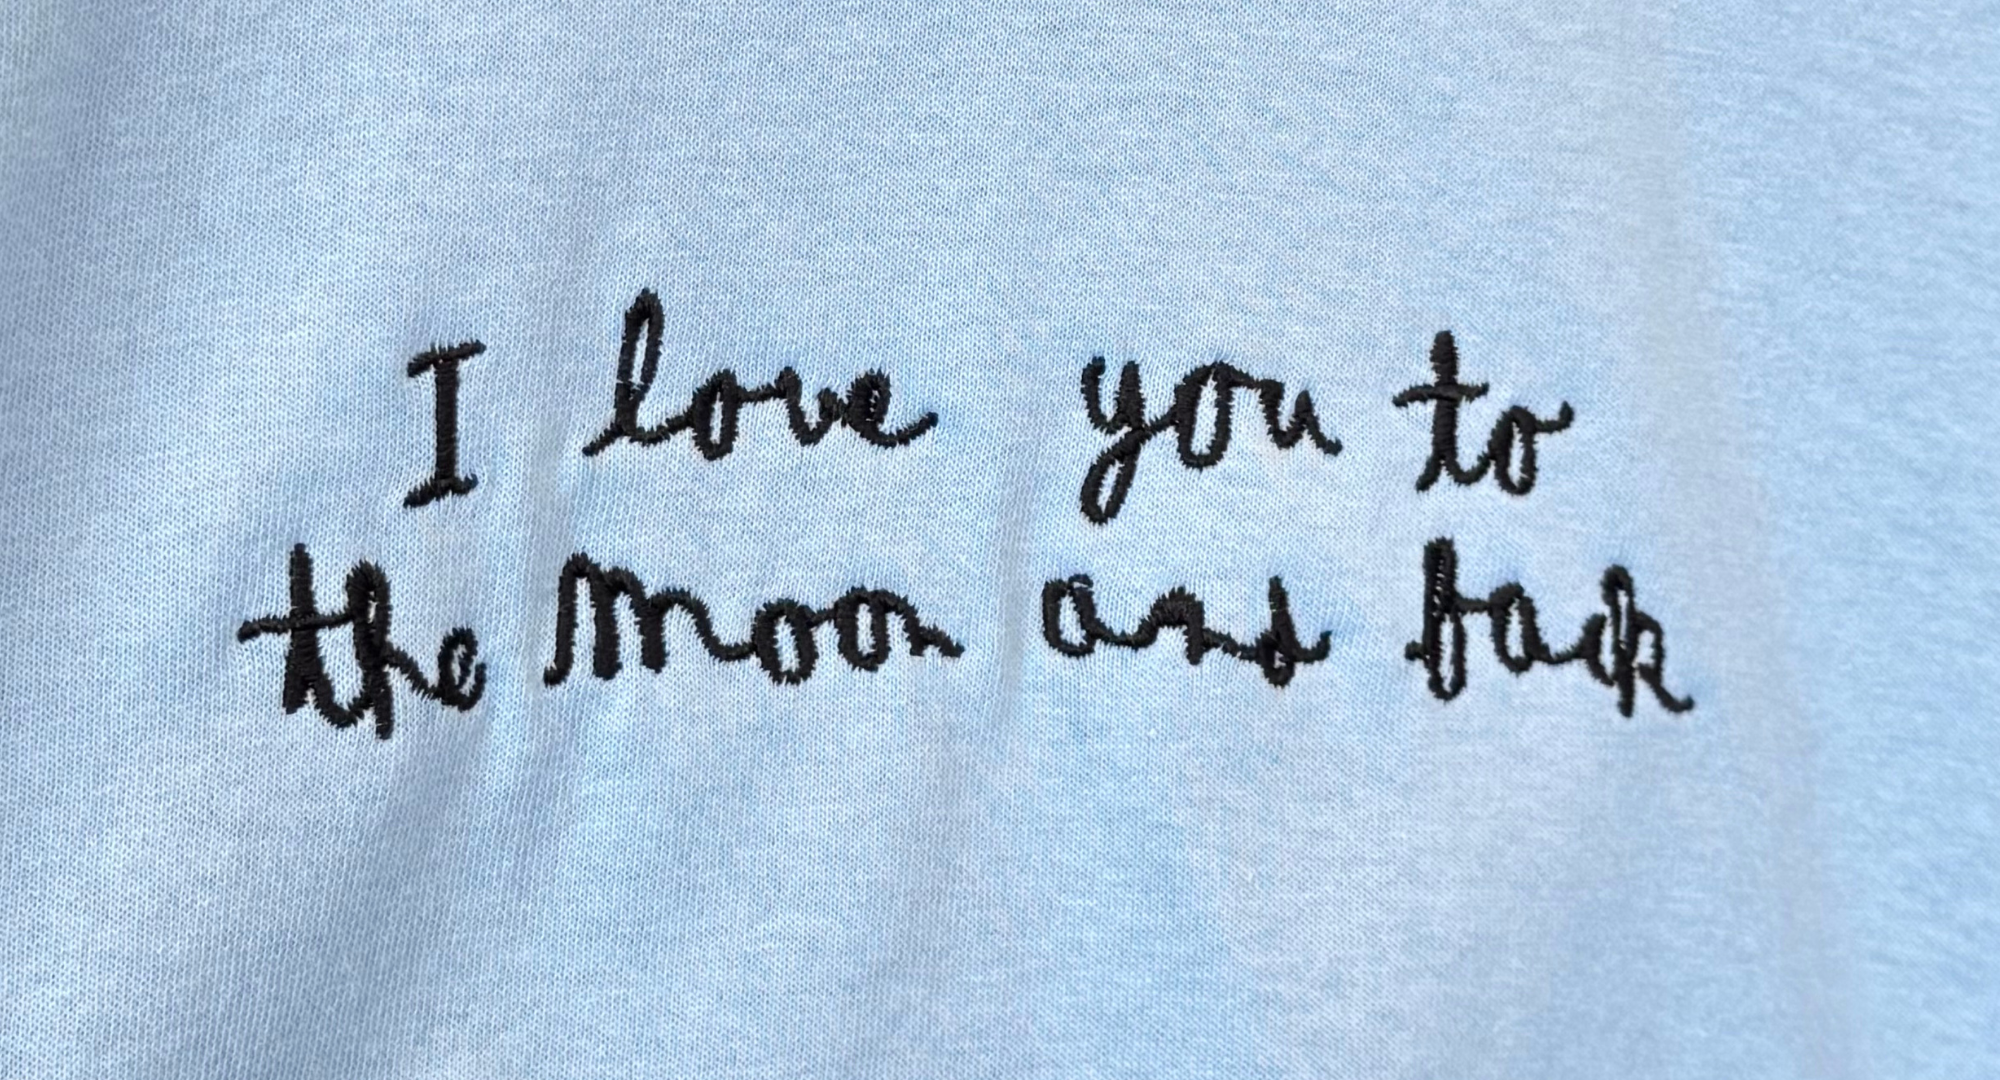 I love you to
the moon and back